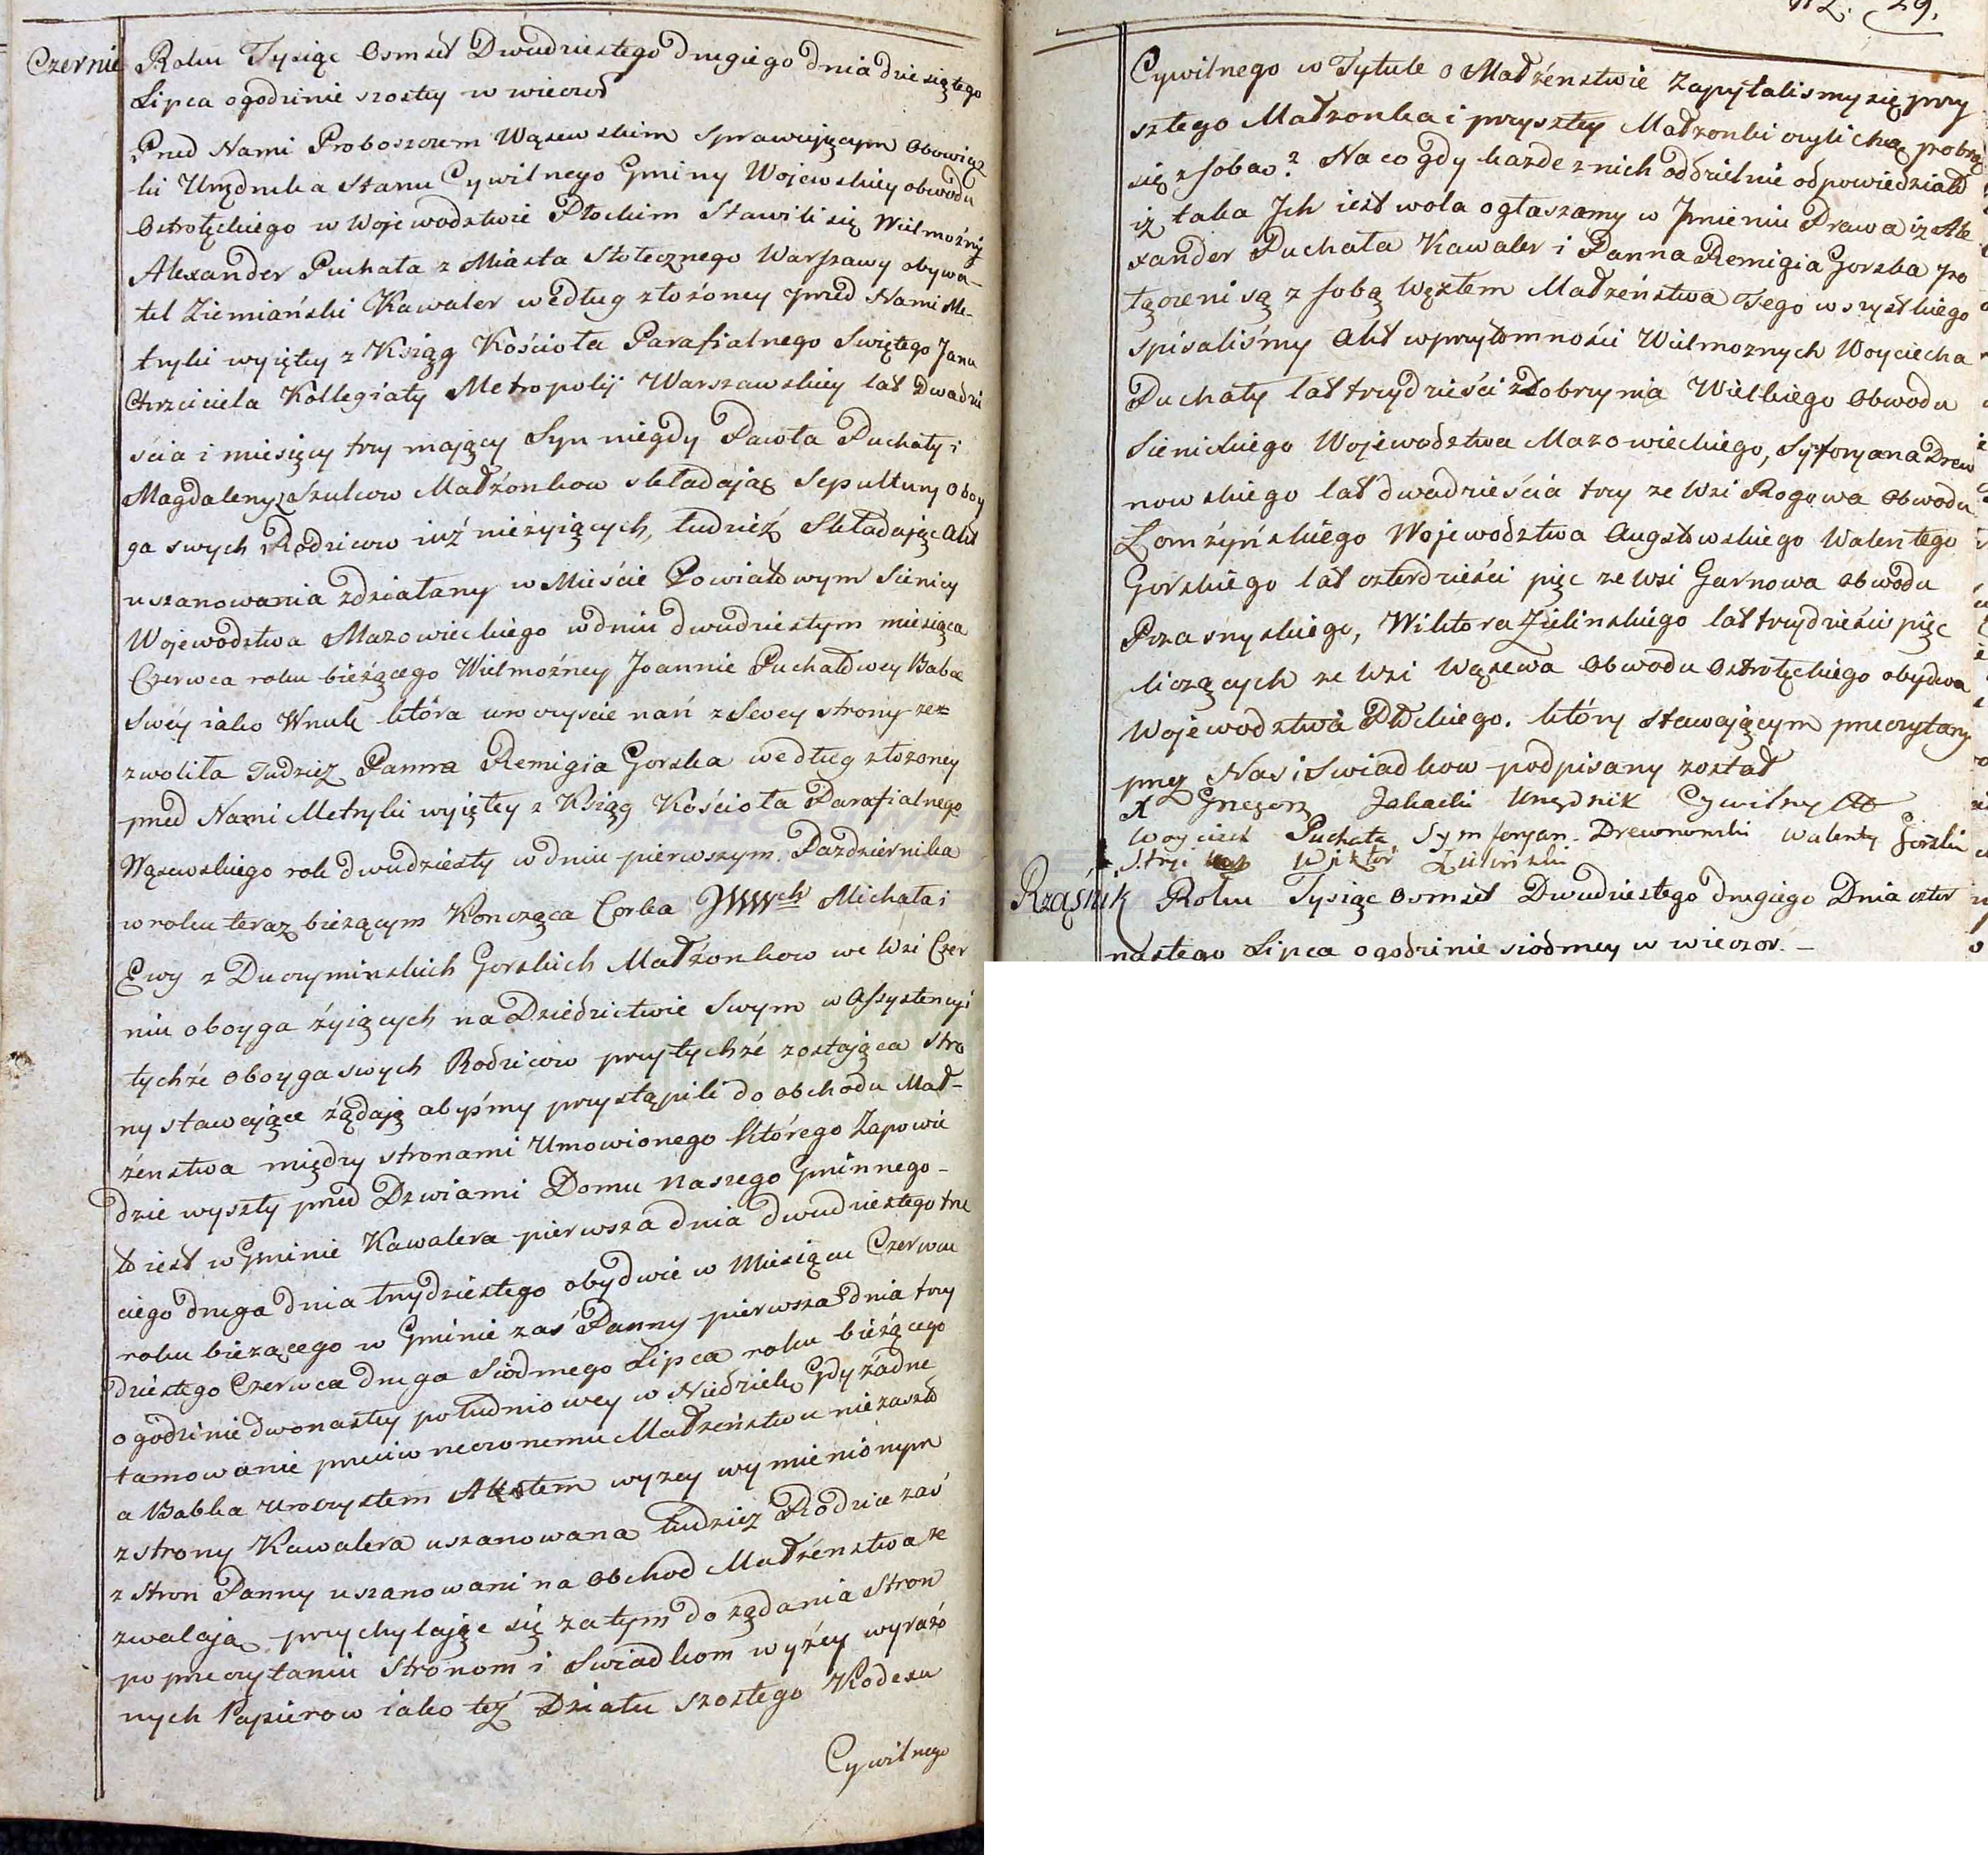 Czernie
Roku Tysiąc Osmset Dwudziestego drugiego dnia dziesiątego
Lipca o godzinie szostey w wieczor
Przed Nami Proboszczem Wąsewskim Sprawującym Obowiąz
ki Urzędnika Stanu Cywilnego Gminy Wojewskiey obwodu
Ostrołęckiego w Wojewodztwie Płockim Stawili się Wielmożny
Alexander Puchała z Miasta Stołecznego Warszawy obywa-
tel Ziemiański Kawaler według złożoney przed Nami Me-
tryki wyiętey z Ksiąg Kościoła Parafialnego Swiętego Jana
Chrzciciela Kollegiaty Metropolij Warszawskiey lat Dwadzie
ścia i miesięcy trzy maiący Syn niegdy Pawła Puchały i
Magdaleny z Szulcow Małżonkow składaiąc Sepultury Oboy
ga swych Rodzicow iuż nieżyiących, tudzież Składaiąc Akt
uszanowania zdziałany w Mieście Powiatowym Sienicy
Wojewodztwa Mazowieckiego w dniu dwudziestym miesiąca
Czerwca roku bieżącego Wielmożney Joannie Puchałowey Babce
Swéy iako Wnuk która uroczyscie nań z Swey strony ze=
zwoliła Tudzież Panna Remigia Gorska według złożoney
przed Nami Metryki wyiętey z Ksiąg Kościoła Parafialnego
Wąsewskiego rok dwudziesty w dniu pierwszym Pazdziernika
w roku teraz bieżącym Koncząca Corka JWWch Michała i
Ewy z Duczyminskich Gorskich Małżonkow we Wsi Czer
niu oboyga żyiących na Dziedzictwie Swym w Assystencyi
tychże oboyga swych Rodzicow przy tychże zostaiąca Stro
ny stawaiące żądaią abyśmy przystąpili do obchodu Mał-
żenstwa między stronami Umowionego którego Zapowie
dzie wyszły przed Drzwiami Domu naszego Gminnego-
to iest w Gminie Kawalera pierwsza dnia dwudziestego trze
ciego druga dnia trzydziestego obydwie w Miesiącu Czerwcu
roku bieżącego w Gminie zaś Panny pierwsza dnia trzy
dziestego Czerwca druga Siodmego Lipca roku bieżącego
o godzinie dwonastey południowey w Niedzielę, Gdy żadne
tamowanie przeciw rzeczonemu Małżeństwu nie zaszło
a Babka Uroczystem Aktem wyzey wymienionym
z strony Kawalera uszanowana tudzież Rodzice zaś
z stron Panny uszanowani na Obchod Małżeństwa ze
zwalaią, przychylaiąc się zatym do żądania Stron
po przeczytaniu Stronom i Swiadkom wyżey wyrażo
nych Papierow iako też Działu szostego Kodexu
Cywilnego
29.
Cywilnego w Tytule o Małżéństwie Zapytaliśmy się przy
szłego Małżonka i przyszłey Małżonki czyli chcą pobrać
się z sobą? Na co gdy każde z nich oddzielnie odpowiedziało
iż taka Ich iest wola ogłaszamy w Imieniu Prawa iż Ale
xander Puchała Kawaler i Panna Remigia Gorska po
łączeni są z sobą Węzłem Małżeństwa Tego wszystkiego
spisaliśmy Akt w przytomności Wielmożnych Woyciecha
Puchały lat trzydzieści z Dobrzynia Wielkiego Obwodu
Sienickiego Wojewodztwa Mazowieckiego, Symforyana Drew
nowskiego lat dwadzieścia trzy ze Wsi Rogowa Obwodu
Łomżyńskiego Wojewodztwa Augstowskiego Walentego
Gorskiego lat czterdzieści pięc ze Wsi Garnowa Obwodu
Przasnyskiego, Wiktora Zielinskiego lat trzydzieści pięc
liczących ze Wsi Wąsewa Obwodu Ostrołęckiego obydwa
Wojewodztwa Płockiego. który stawaiącym przeczytany
przez Nas i Swiadkow podpisany został
X Grzegorz Urzędnik Cywilny
Woyciech Puchała Symforyan Drewnowski Walenty Gorski
Stryi Wiktor Zieliński
Rząśnik
Roku Tysiąc Osmset Dwudziestego drugiego Dnia czter
nastego Lipca o godzinie siodmey w wieczor. -